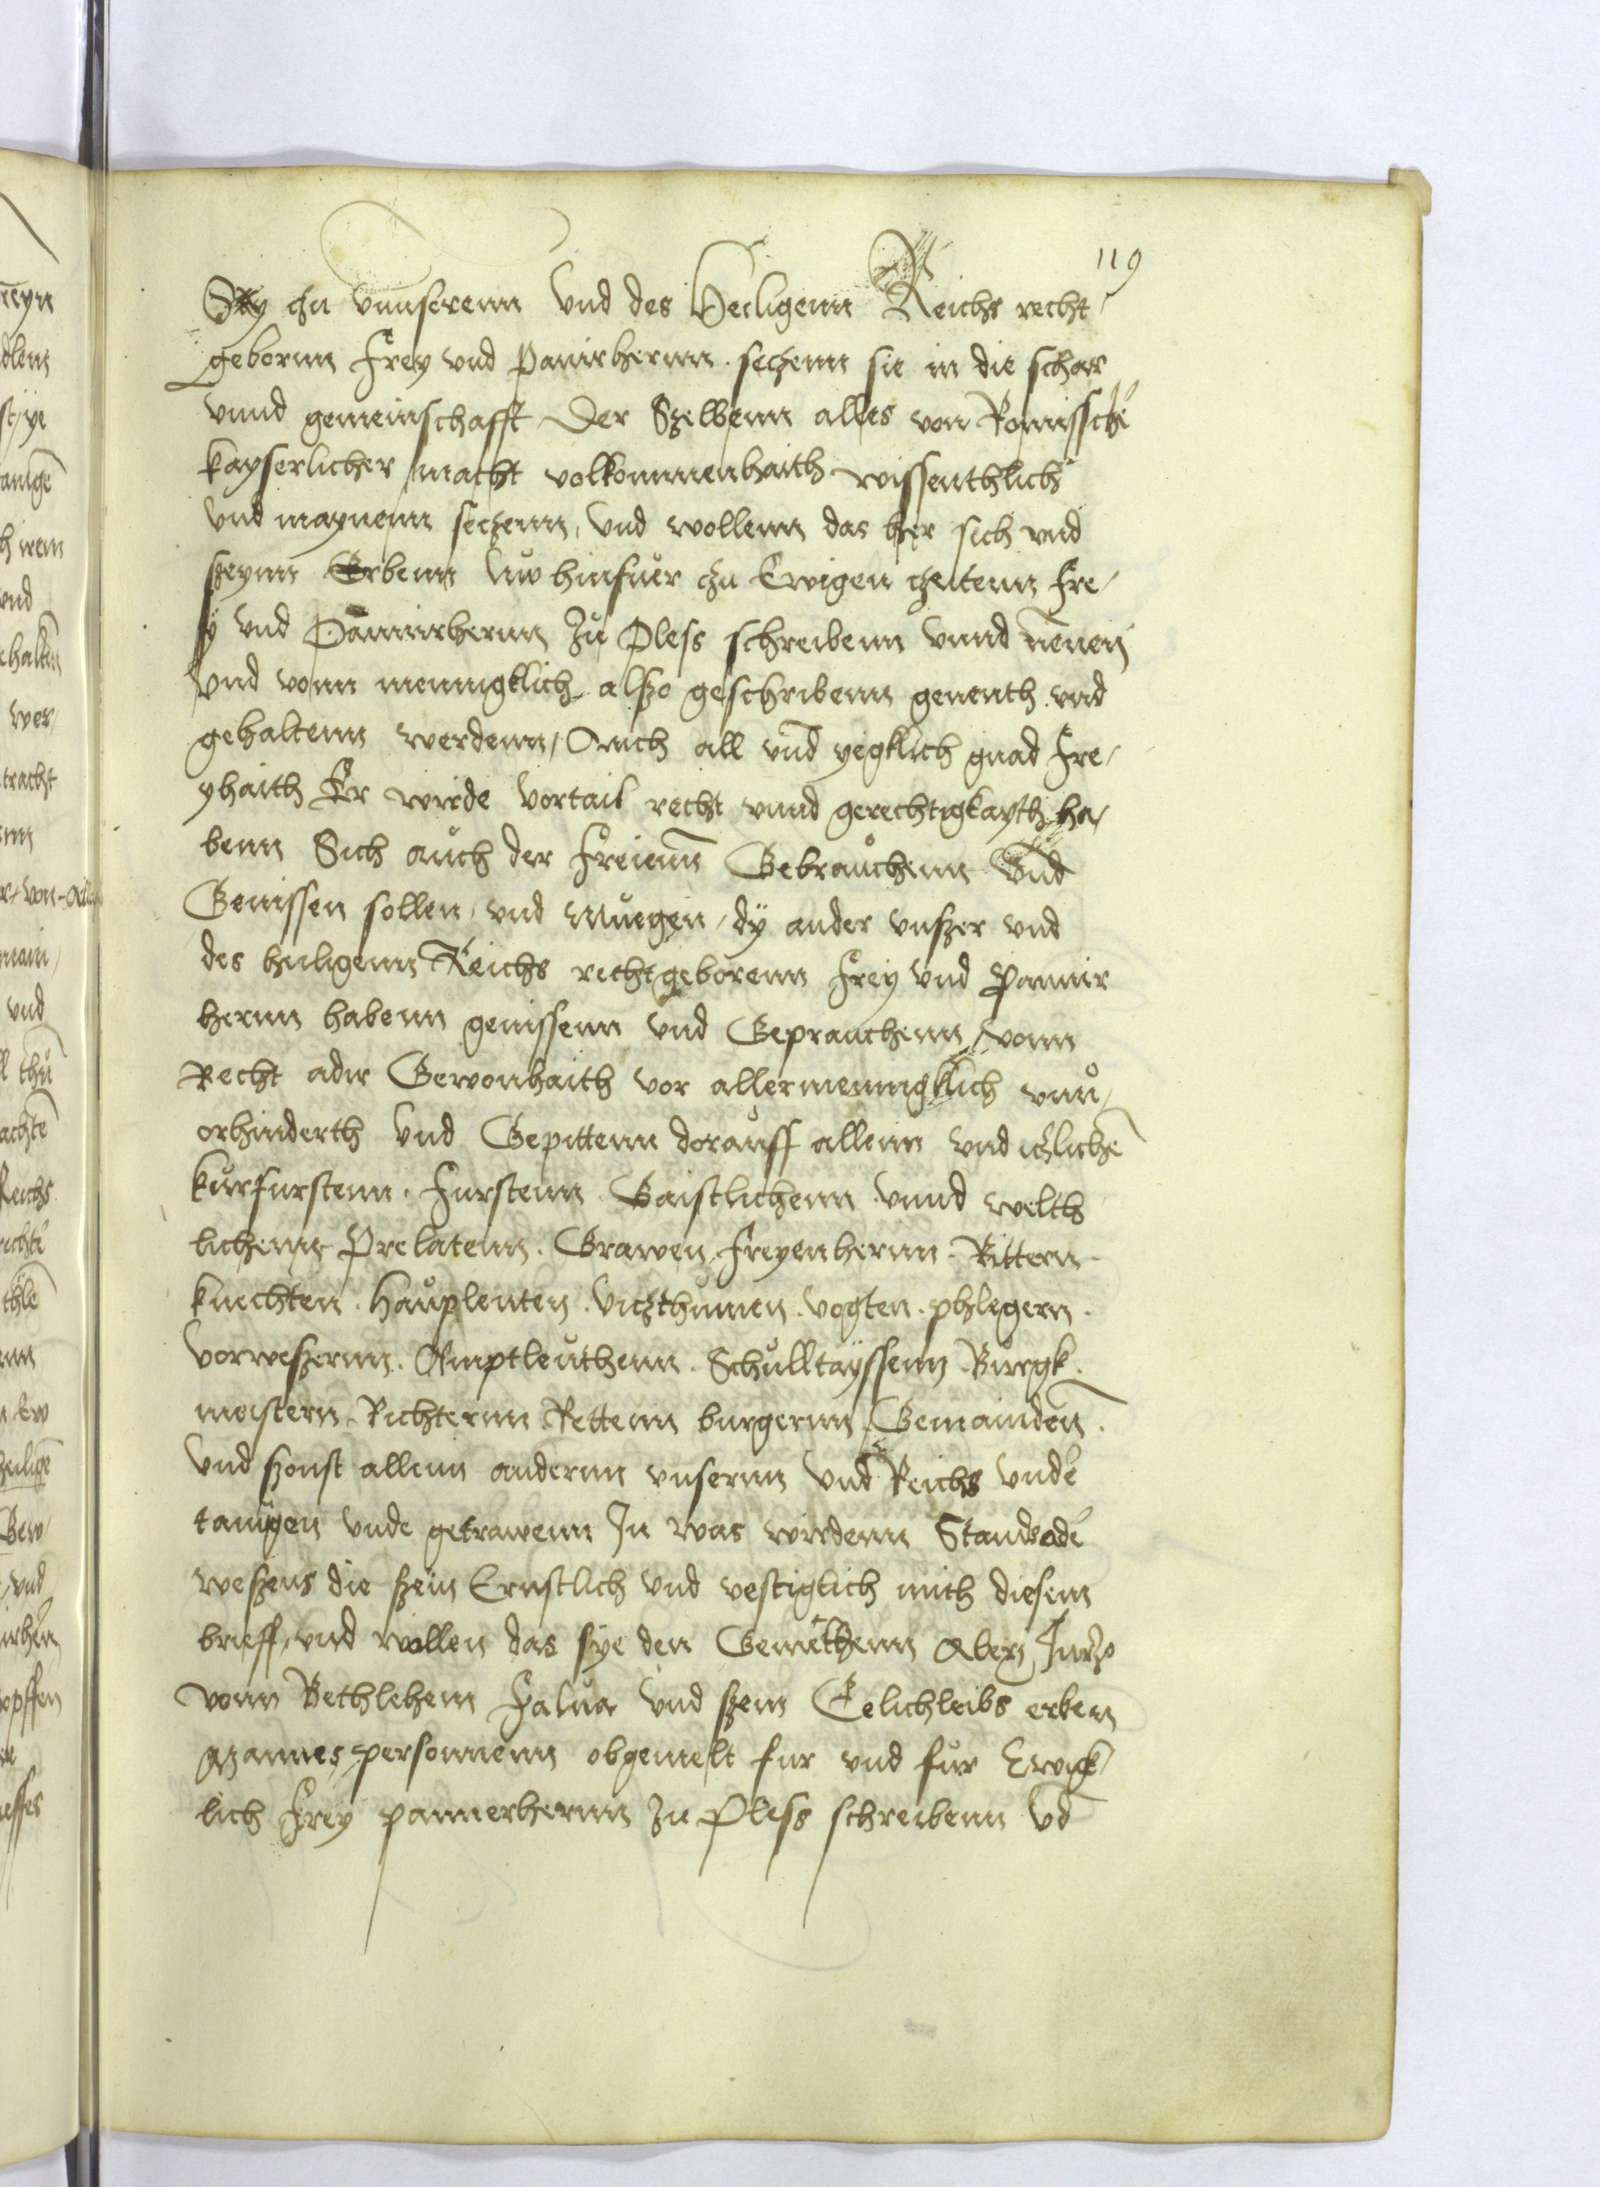 119
Sey zu unnserenn Und des Heiligenn Reichs recht
gebornn Frey und panirhernn. seczenn sie in die schar
unnd gemeinschafft Der Szelbenn alles von Romissche
kayserlicher macht volkommenhaith wissenthlich
und maynenn seczenn, Und wollenn das her sich und
szeynn Erbenn nuw hinfuer zu Ewigen zceitenn Fre/
y und Pannirhernn Zu Pless schreibenn Unnd nenen
Und vonn mennigklich alszo geschribenn genenth und
gehaltenn werdenn / Auch all und yegklich gnad Fre/
yhaith Er wirde Vortail recht unnd gerechtigkayth ha/
benn Sich auch der Freienn Gebrauchenn Und
Genissen sollen, und Muegen / dy ander unszer und
des heiligenn Reichs rechtgeborenn Frey und Pannir
hernn habenn genissenn und Geprauchenn / vonn
Recht ader Gewonhaith vor allermennigklich unu/
orhinderth Und Gepittenn dorauff allenn und iczliche
kurfurstenn. Furstenn Gaistlichenn Unnd welth
lichenn Prelatenn. Grawen. Freyenhernn. Rittern.
knechten. Hauplenten. Viczthumen. Vogten. phlegern.
Vorweszernn. Amptleuthenn. Schulltayssenn. Burgk.
meistern. Richternn Rettenn burgernn. Gemainden.
Und szonst allenn andernn unsernn Und Reichs unde
tanigen unde getrawenn In was wirdenn Stands ode
weszens die szein Ernstlich und vestiglich mith diesem
brieff, und wollen das sye den Genenthenn Alexi Turzo
vonn Bethlehem Falua Und szein Eelichleibs erben
Mannes personnenn obgemelt fur und fur Ewigk/
lich Frey pannerhernn Zu Pless schreibenn Ud